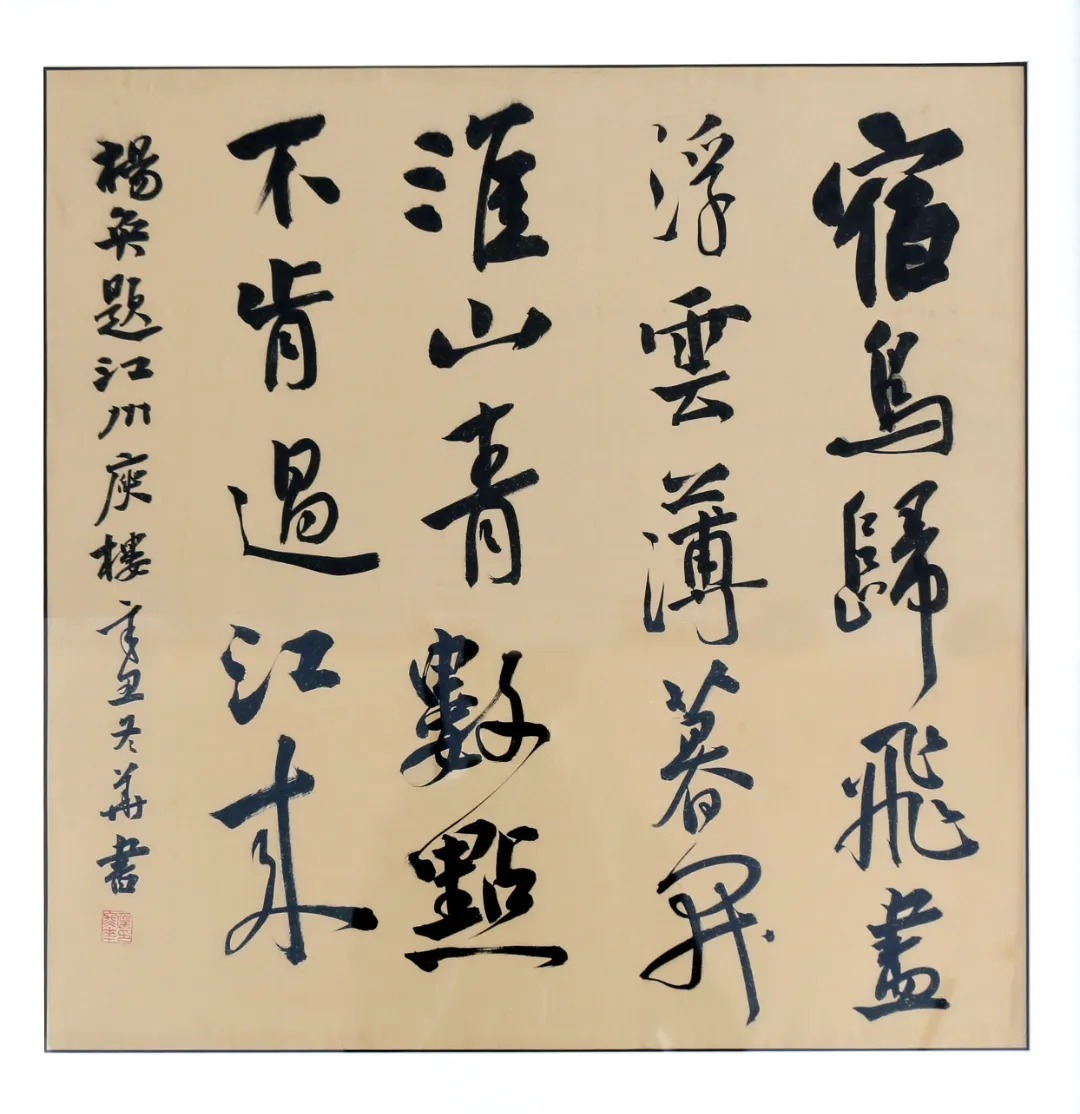 宿鳥歸飛盡
浮雲薄暮開
淮山青數點
不肯過江來
楊奐題江州庾樓辛丑冬華書